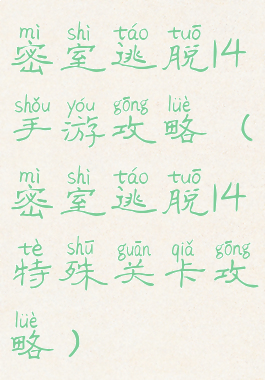 mì shì táo tuō
密室逃脱14
shǒu yóu gōng lüè
手游攻略（
mì shì táo tuō
密室逃脱14
tè shū guān qiǎ gōng
特殊关卡攻
lüè
略）